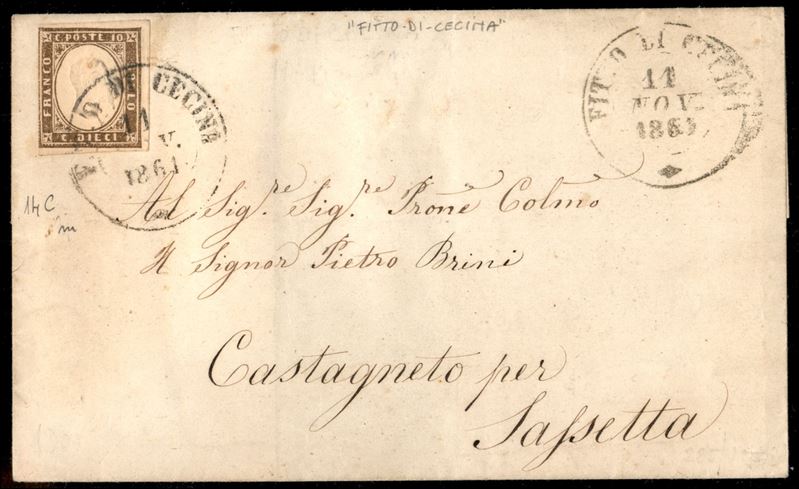 "FITTO-DI-CECINA"
C. POSTE 10
FRANCO
BOLLO
C. DIECI
DI CECINA
11
V.
1861
FIT. O DI CECINA
11
NOV.
1861
14C
Al Sig.re Sig.re Prone Colmo
Il Signor Pietro Brini
Castagneto per
Sassetta